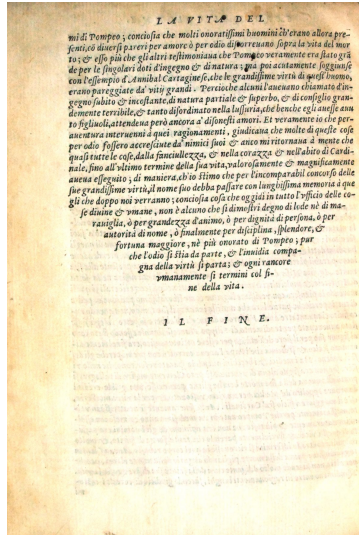 LA VITA DEL
mi di Pompeo; conciosia che molti onoratissimi huomini ch'erano allora pre-
senti, cõ diuersi pareri per amore ò per odio discorreuano sopra la vita del mor
to; & esso più che gli altri testimoniaua che Pompeo veramente era stato grã
de per le singolari doti d'ingegno & di natura; ma poi acutamente soggiunse
con l'essempio d'Annibal Cartaginese, che le grandissime virtù di quest'huomo,
erano pareggiate da' vitij grandi. Percioche alcuni l'aueuano chiamato d'in-
gegno subito & incostante, di natura partiale & superbo, & di consiglio gran-
demente terribile, & tanto disordinato nella lussuria, che benche egli auesse auu
to figliuoli, attendeua però ancora a' disonesti amori. Et veramente io che per-
auentura interuenni à quei ragionamenti, giudicaua che molte di queste cose
per odio fossero accresciute da' nimici suoi & anco mi ritornaua à mente che
quasi tutte le cose, dalla fanciullezza, & nella corazza & nell'abito di Cardi-
nale, fino all'vltimo termine della sua vita, valorosamente & magnificamente
aueua esseguito; di maniera, ch'io stimo che per l'incomparabil concorso delle
sue grandissime virtù, il nome suo debba passare con lunghissima memoria à que
gli che doppo noi verranno; conciosia cosa che oggidì in tutto l'vfficio delle co-
se diuine & vmane, non è alcuno che si dimostri degno di lode nè di ma-
rauiglia, ò per grandezza d'animo, ò per dignità di persona, ò per
autorità di nome, ò finalmente per disciplina, splendore, &
fortuna maggiore, nè più onorato di Pompeo; pur
che l'odio si stia da parte, & l'inuidia compa-
gna della virtù si parta; & ogni rancore
vmanamente si termini col fi-
ne della vita.
IL FINE.